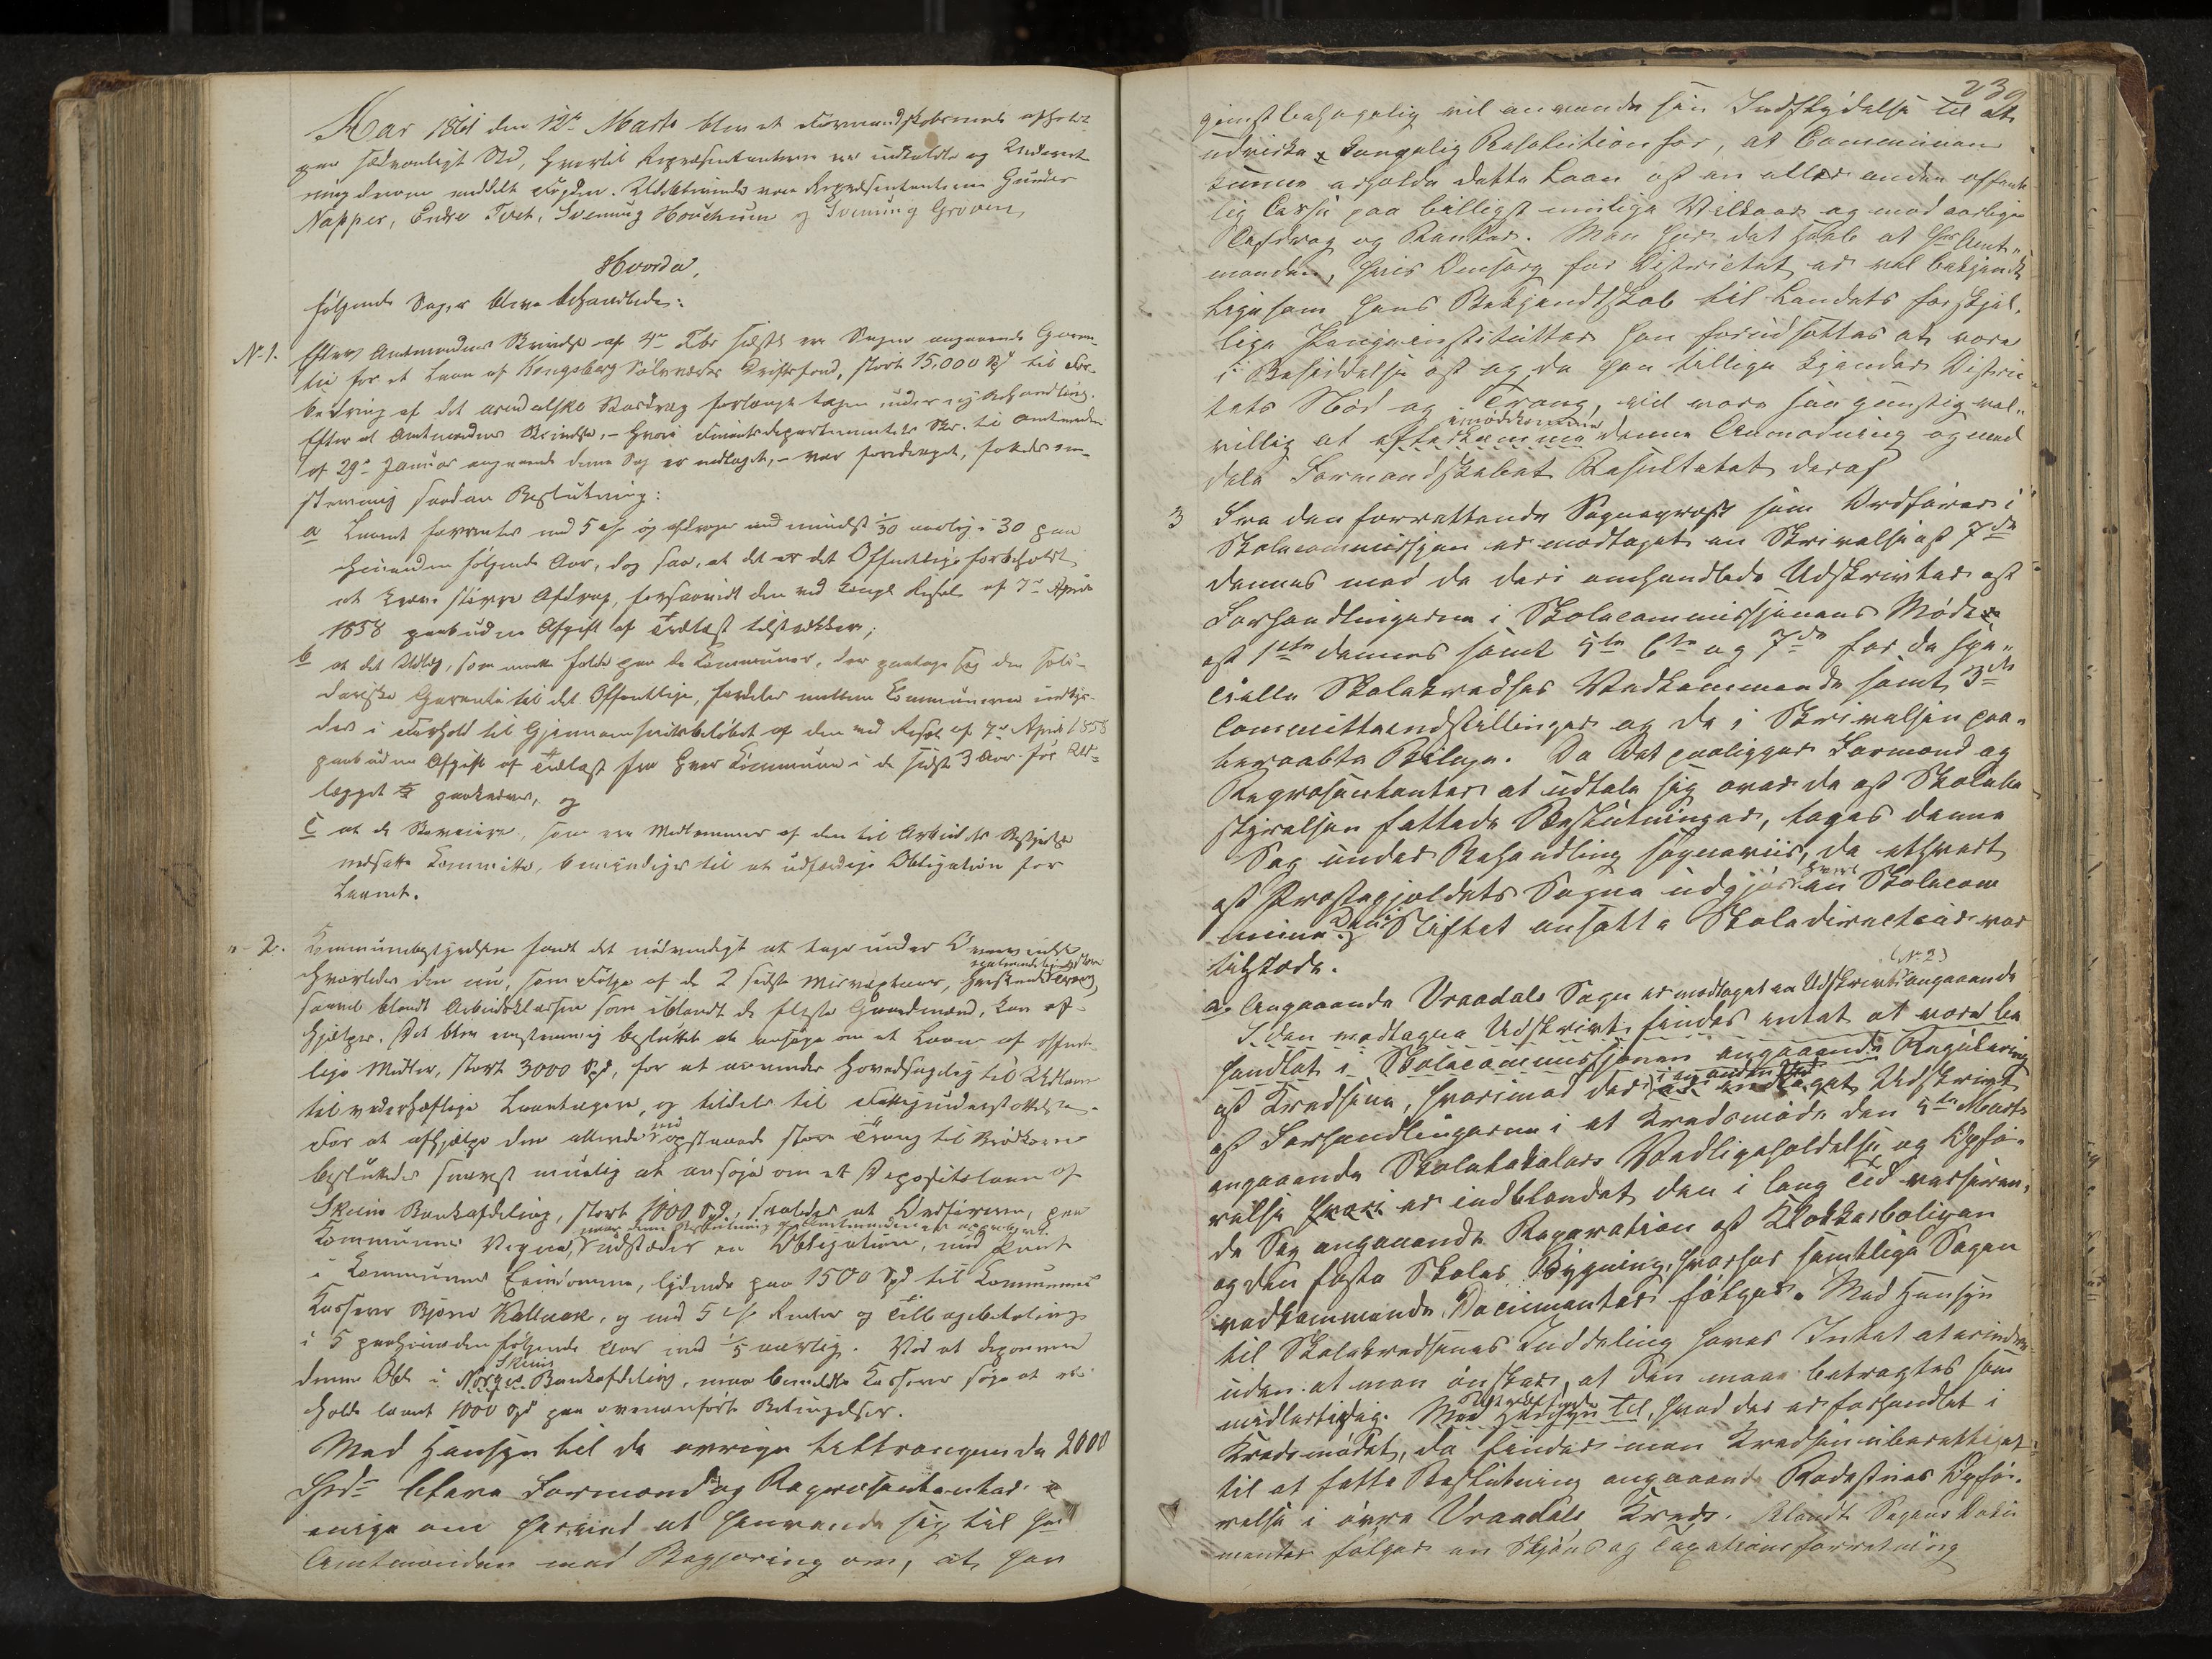 Aar 1861 den 12te Marts blev et Formandskabsmøde afholdt
paa sædvanligt Sted, hvortil Repræsentanterne var indkaldte og Underret-
ning derom meddelt Fogden. Udeblivende var Repræsentanterne Gunder
Napper, Endre Tveit, Svenung Houchum og Svenung Groven,
Hvorda,
følgende Sager bleve behandlede:
No 1. Efter Amtmandens Skrivelse af 4de Febr sidstl. er Sagen angaaende Garan-
tie for et Laan af Kongsberg Sølvværks Driftsfond, stort 15,000 Spd til For-
bedring af det arendalske Vasdrag forlangt tagen under ny Behandling.
Efter at Amtmandens Skrivelse, – hvori Finantsdepartementets Skr. til Amtmanden
af 29de Januar angaaende denne Sag er indtaget, – var foredraget, fattedes een-
stemmig saadan Beslutning:
a Laanet forrentes med 5 % og afdrages med mindst 1/30 aarlig i 30 paa
hinanden følgende Aar, dog saa, at det er det Offentlige forbeholdt
at kræve større Afdrag, forsaavidt den ved kongl. Resol. af 7de April
1858 paabudne Afgift af Trælast tilstrækker;
b at det Udlæg, som maatte falde paa de Kommuner, der paatage sig den soli-
dariske Garanti til det Offentlige, fordeles mellem Kommunerne indbyr-
des i Forhold til Gjennemsnitsbeløbet af den ved Resol. af 7de April 1858
paabudne Afgift af Trælast fra hver Kommune i de sidste 3 Aar før Ud-
lægget paakræves, og
c at de Skoveiere, som ere Medlemmer af den til Arbeidets Bestyrelse
nedsatte Committe, bemyndiges til at udfærdige Obligation for
Laanet.
" 2. Kommunebestyrelsen fandt det nødvendigt at tage under Overveielse
hvorledes den nu, som Følge af de 2 sidste Misvæxtaar, herskende Trang,
saavel blandt Arbeidsklassen som iblandt de fleste Gaardmænd, kan af-
hjælpes. Det blev eenstemmig besluttet at ansøge om et Laan af offent-
lige Midler, stort 3000 Spd, for at anvendes hovedsagelig til Udlaan
til vederhæftige Laantagere, og tildels til Fattigunderstøttelse.
For at afhjælpe den allerede nu opstaaede store Trang til Brødkorn
besluttedes snarest muelig at ansøge om et Depositolaan af
Skiens Bankafdeling, stort 1000 Spd, saaledes at Ordføreren, paa
naar denne Beslutning af Amtmanden er approberet
Kommunens Vegne, udstæder en Obligation, med Pant
i Kommunens Eiendomme, lydende paa 1500 Spd til Kommunens
Kasserer Bjørn Kalluak, og med 5 % Renter og Tilbagebetaling
i 5 paahinanden følgende Aar med 1/5 aarlig. Ved at deponere
Skiens
denne Obl. i Norges Bankafdeling, maa bemeldte Kasserer søge at er-
holde laant 1000 Spd paa ovenanførte Betingelser.
Med Hensyn til de øvrige tiltrængende 2000
Spd bleve Formænd og Repræsentanter
enige om herved at henvende sig til Hr.
Amtmanden med Begjæring om, at han
230
gunstbehagelig vil anvende sin Indflydelse til at
udvirke kongelig Resolution for, at Communen
kunne erholde dette Laan af en eller anden offent-
lig Casse paa billigst mulige Vilkaar og mod aarlige
Afdrag og Renter. Man har det Haab at Hr Amt-
manden, hvis Omsorg for Districtet er vel bekjendt
ligesom hans Bekjendtskab til Landets forskjel-
lige Pengeinstitutter han forudsættes at være
i Besiddelse af og da han tillige kjender Distric-
tets Nød og Trang, vil være saa gunstig vel-
imødekomme
villig at efterkomme denne Anmodning og med-
dele Formandskabet Resultatet deraf
3 Fra den forrettende Sognepræst som Ordfører i
Skolecommissjonen er modtaget en Skrivelse af 7de
dennes med de deri omhandlede Udskrivter af
Forhandlingerne i Skolecommissjonens Møde
af 1ste dennes samt 5te 6te og 7de for de spe-
cielle Skolekredses Vedkommende samt 3de
Committeindstillinger og de i Skrivelsen paa-
beraabte Bilage. Da det paaligger Formænd og
Repræsentanter at udtale sig over de af Skolebe-
styrelsen fattede Beslutninger, tages denne
Sag under Behandling sognevis, da ethvert
af Præstegjeldets Sogne udgjør en Skolecom-
mune. Den i Stiftet ansatte Skoledirecteur var
tilstede.
(No 2)
a. Angaaende Vraadals Sogn er modtaget en Udskrivt angaaende
I den modtagne Udskrivt findes intet at være be-
handlet i Skolecommissjonen angaaende Regulering
af Kredsene, hvorimod der er indtaget Udskrivt
af Forhandlingerne i et Kredsmøde den 5te Marts
angaaende Skolelokalers Vedligeholdelse og Opfø-
relse hvori er indblandet den i lang Tid verseren-
de Sag angaaende Reparation af Klokkerboligen
og den faste Skoles Bygning, hvorfor samtlige Sagen
vedkommende Documenter følger. Med Hensyn
til Skolekredsenes Inddeling haves Intet at erindre
uden at man ønsker, at den maa betragtes som
midlertidig. Med Hensyn til, hvad der er forhandlet i
Kredsmødet, da finder man Kredsen uberettiget
til at fatte Beslutning angaaende Rodestues Opfø-
relse i øvre Vraadals Kreds. Blandt Sagens Docu-
menter følger en Skjøns og Taxationsforretning